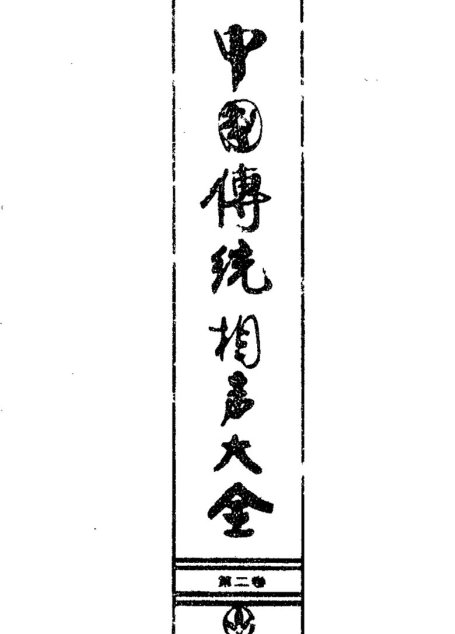 中国傳统相声大全
第二卷